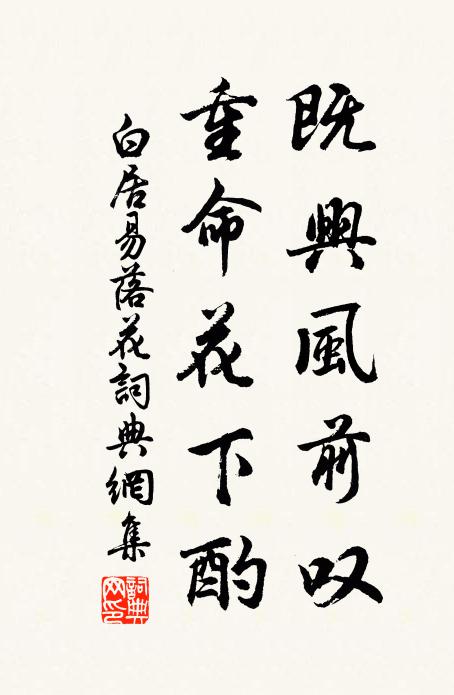 既興風前叹
重命花下酌
白居易落花詞典網集
詞典网印